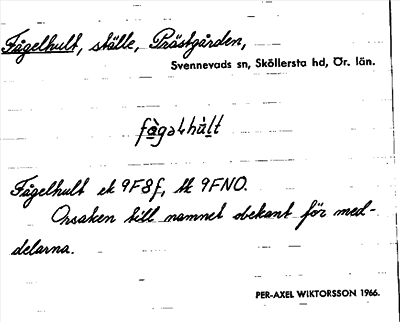 Fågelhult, ställe, Prästgården,
Svennevads sn, Sköllersta hd, Ör. län.
Fågelhult ek 9F8f, tk 9FNO.
Orsaken till namnet obekant för med-
delarna.
PER-AXEL WIKTORSSON 1966.